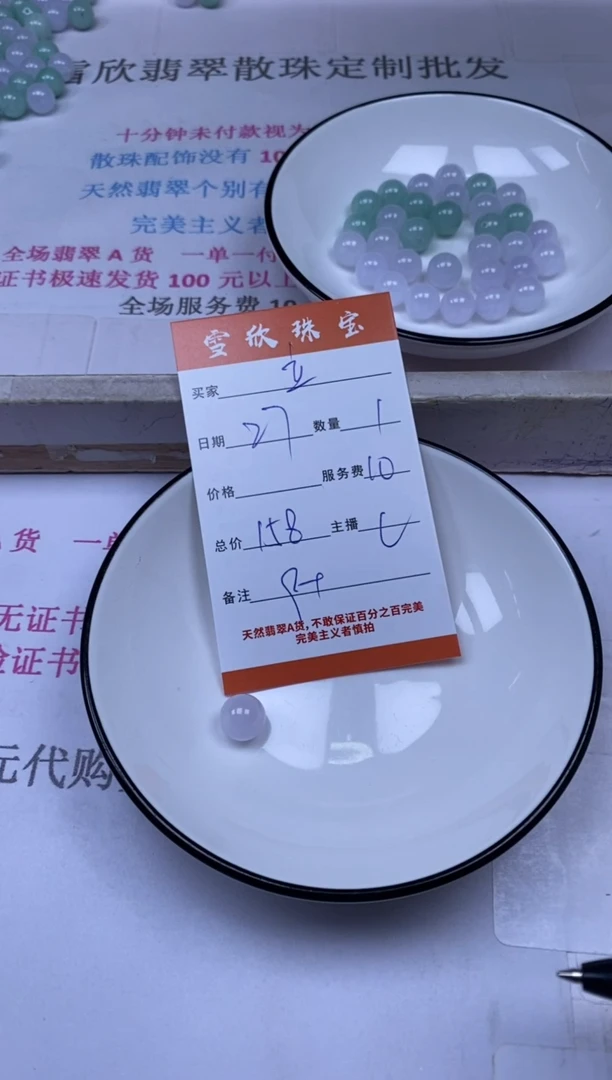 雪欣翡翠散珠定制批发
十分钟未付款视为
散珠配饰没有 10
天然翡翠个别有
完美主义者
全场翡翠 A 货 一单一付
证书极速发货 100 元以上
全场服务费 10
雪欣珠宝
买家
日期 27 数量 1
价格 服务费 10
总价 158 主播
备注
天然翡翠A货，不敢保证百分之百完美
完美主义者慎拍
货 一单
无证书
证书
元代购